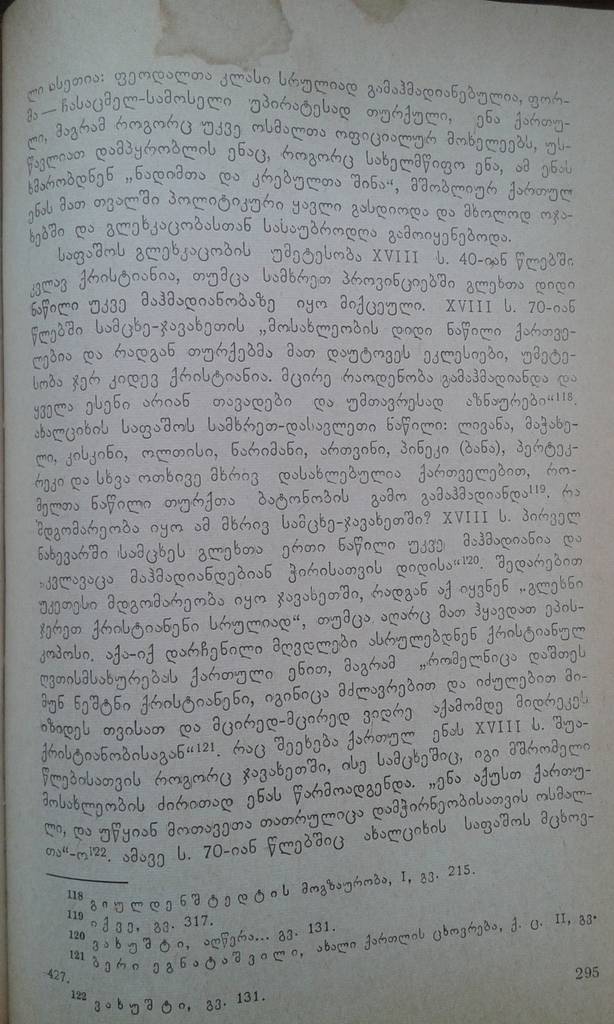 ლი ასეთია: ფეოდალთა კლასი სრულიად გამაჰმადიანებულია, ფორ-
მა — ჩასაცმელ-სამოსელი უპირატესად თურქული, ენა ქართუ-
ლი, მაგრამ როგორც უკვე ოსმალთა ოფიციალურ მოხელეებს, უს-
წავლიათ დამპყრობლის ენაც, როგორც სახელმწიფო ენა, ამ ენას
ხმარობდნენ „ნადიმთა და კრებულთა შინა“, მშობლიურ ქართულ
ენას მათ თვალში პოლიტიკური ყავლი გასდიოდა და მხოლოდ ოჯა-
ხებში და გლეხკაცობასთან სასაუბროდღა გამოიყენებოდა.
საფაშოს გლეხკაცობის უმეტესობა XVIII ს. 40-იან წლებში
კვლავ ქრისტიანია, თუმცა სამხრეთ პროვინციებში გლეხთა დიდი
ნაწილი უკვე მაჰმადიანობაზე იყო მიქცეული. XVIII ს. 70-იან
წლებში სამცხე-ჯავახეთის „მოსახლეობის დიდი ნაწილი ქართვე-
ლებია და რადგან თურქებმა მათ დაუტოვეს ეკლესიები, უმეტე-
სობა ჯერ კიდევ ქრისტიანია. მცირე რაოდენობა გამაჰმადიანდა და
ყველა ესენი არიან თავადები და უმთავრესად აზნაურები“118.
ახალციხის საფაშოს სამხრეთ-დასავლეთი ნაწილი: ლივანა, მაჭახე-
ლი, კისკინი, ოლთისი, ნარიმანი, ართვინი, პინეკი (ბანა), პერტეკ-
რეკი და სხვა ოთხივე მხრივ დასახლებულია ქართველებით, რო-
მელთა ნაწილი თურქთა ბატონობის გამო გამაჰმადიანდა119. რა
მდგომარეობა იყო ამ მხრივ სამცხე-ჯავახეთში? XVIII ს. პირველ
ნახევარში სამცხეს გლეხთა ერთი ნაწილი უკვე მაჰმადიანია და
„კვლავაცა მაჰმადიანდებიან ჭირისათვის დიდისა“120. შედარებით
უკეთესი მდგომარეობა იყო ჯავახეთში, რადგან აქ იყვნენ „გლეხნი
ჯერეთ ქრისტიანენი სრულიად“, თუმცა აღარც მათ ჰყავდათ ეპის-
კოპოსი. აქა-იქ დარჩენილი მღვდლები ასრულებდნენ ქრისტიანულ
ღვთისმსახურებას ქართული ენით, მაგრამ „რომელნიცა დაშთეს
მუნ ნეშტნი ქრისტიანენი, იგინიცა მძლავრებით და იძულებით მი-
იზიდეს თვისათ და მცირედ-მცირედ ვიდრე აქამომდე მიდრეკეს
ქრისტიანობისაგან“121. რაც შეეხება ქართულ ენას XVIII ს. შუა-
წლებისათვის როგორც ჯავახეთში, ისე სამცხეშიც, იგი მშრომელი
მოსახლეობის ძირითად ენას წარმოადგენდა. „ენა აქუსთ ქართუ-
ლი, და უწყიან მოთავეთა თათრულიცა დამჭირნეობისათვის ოსმალ-
თა“-ო122. ამავე ს. 70-იან წლებშიც ახალციხის საფაშოს მცხოვ-
118 გიულდენშტედტის მოგზაურობა, I, გვ. 215.
119 იქვე, გვ. 317.
120 ვახუშტი, აღწერა... გვ. 131.
121 ბერი ეგნატაშვილი, ახალი ქართლის ცხოვრება, ქ. ც. II, გვ.
427.
122 ვახუშტი, გვ. 131.
295